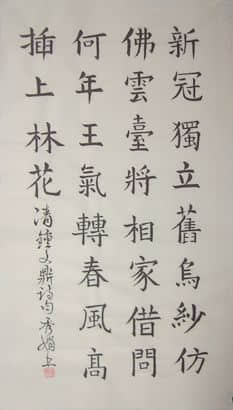 新冠獨立舊烏紗仿
佛雲臺將相家借問
何年王氣轉春風高
插上林花
清鐘文鼎詩句秀